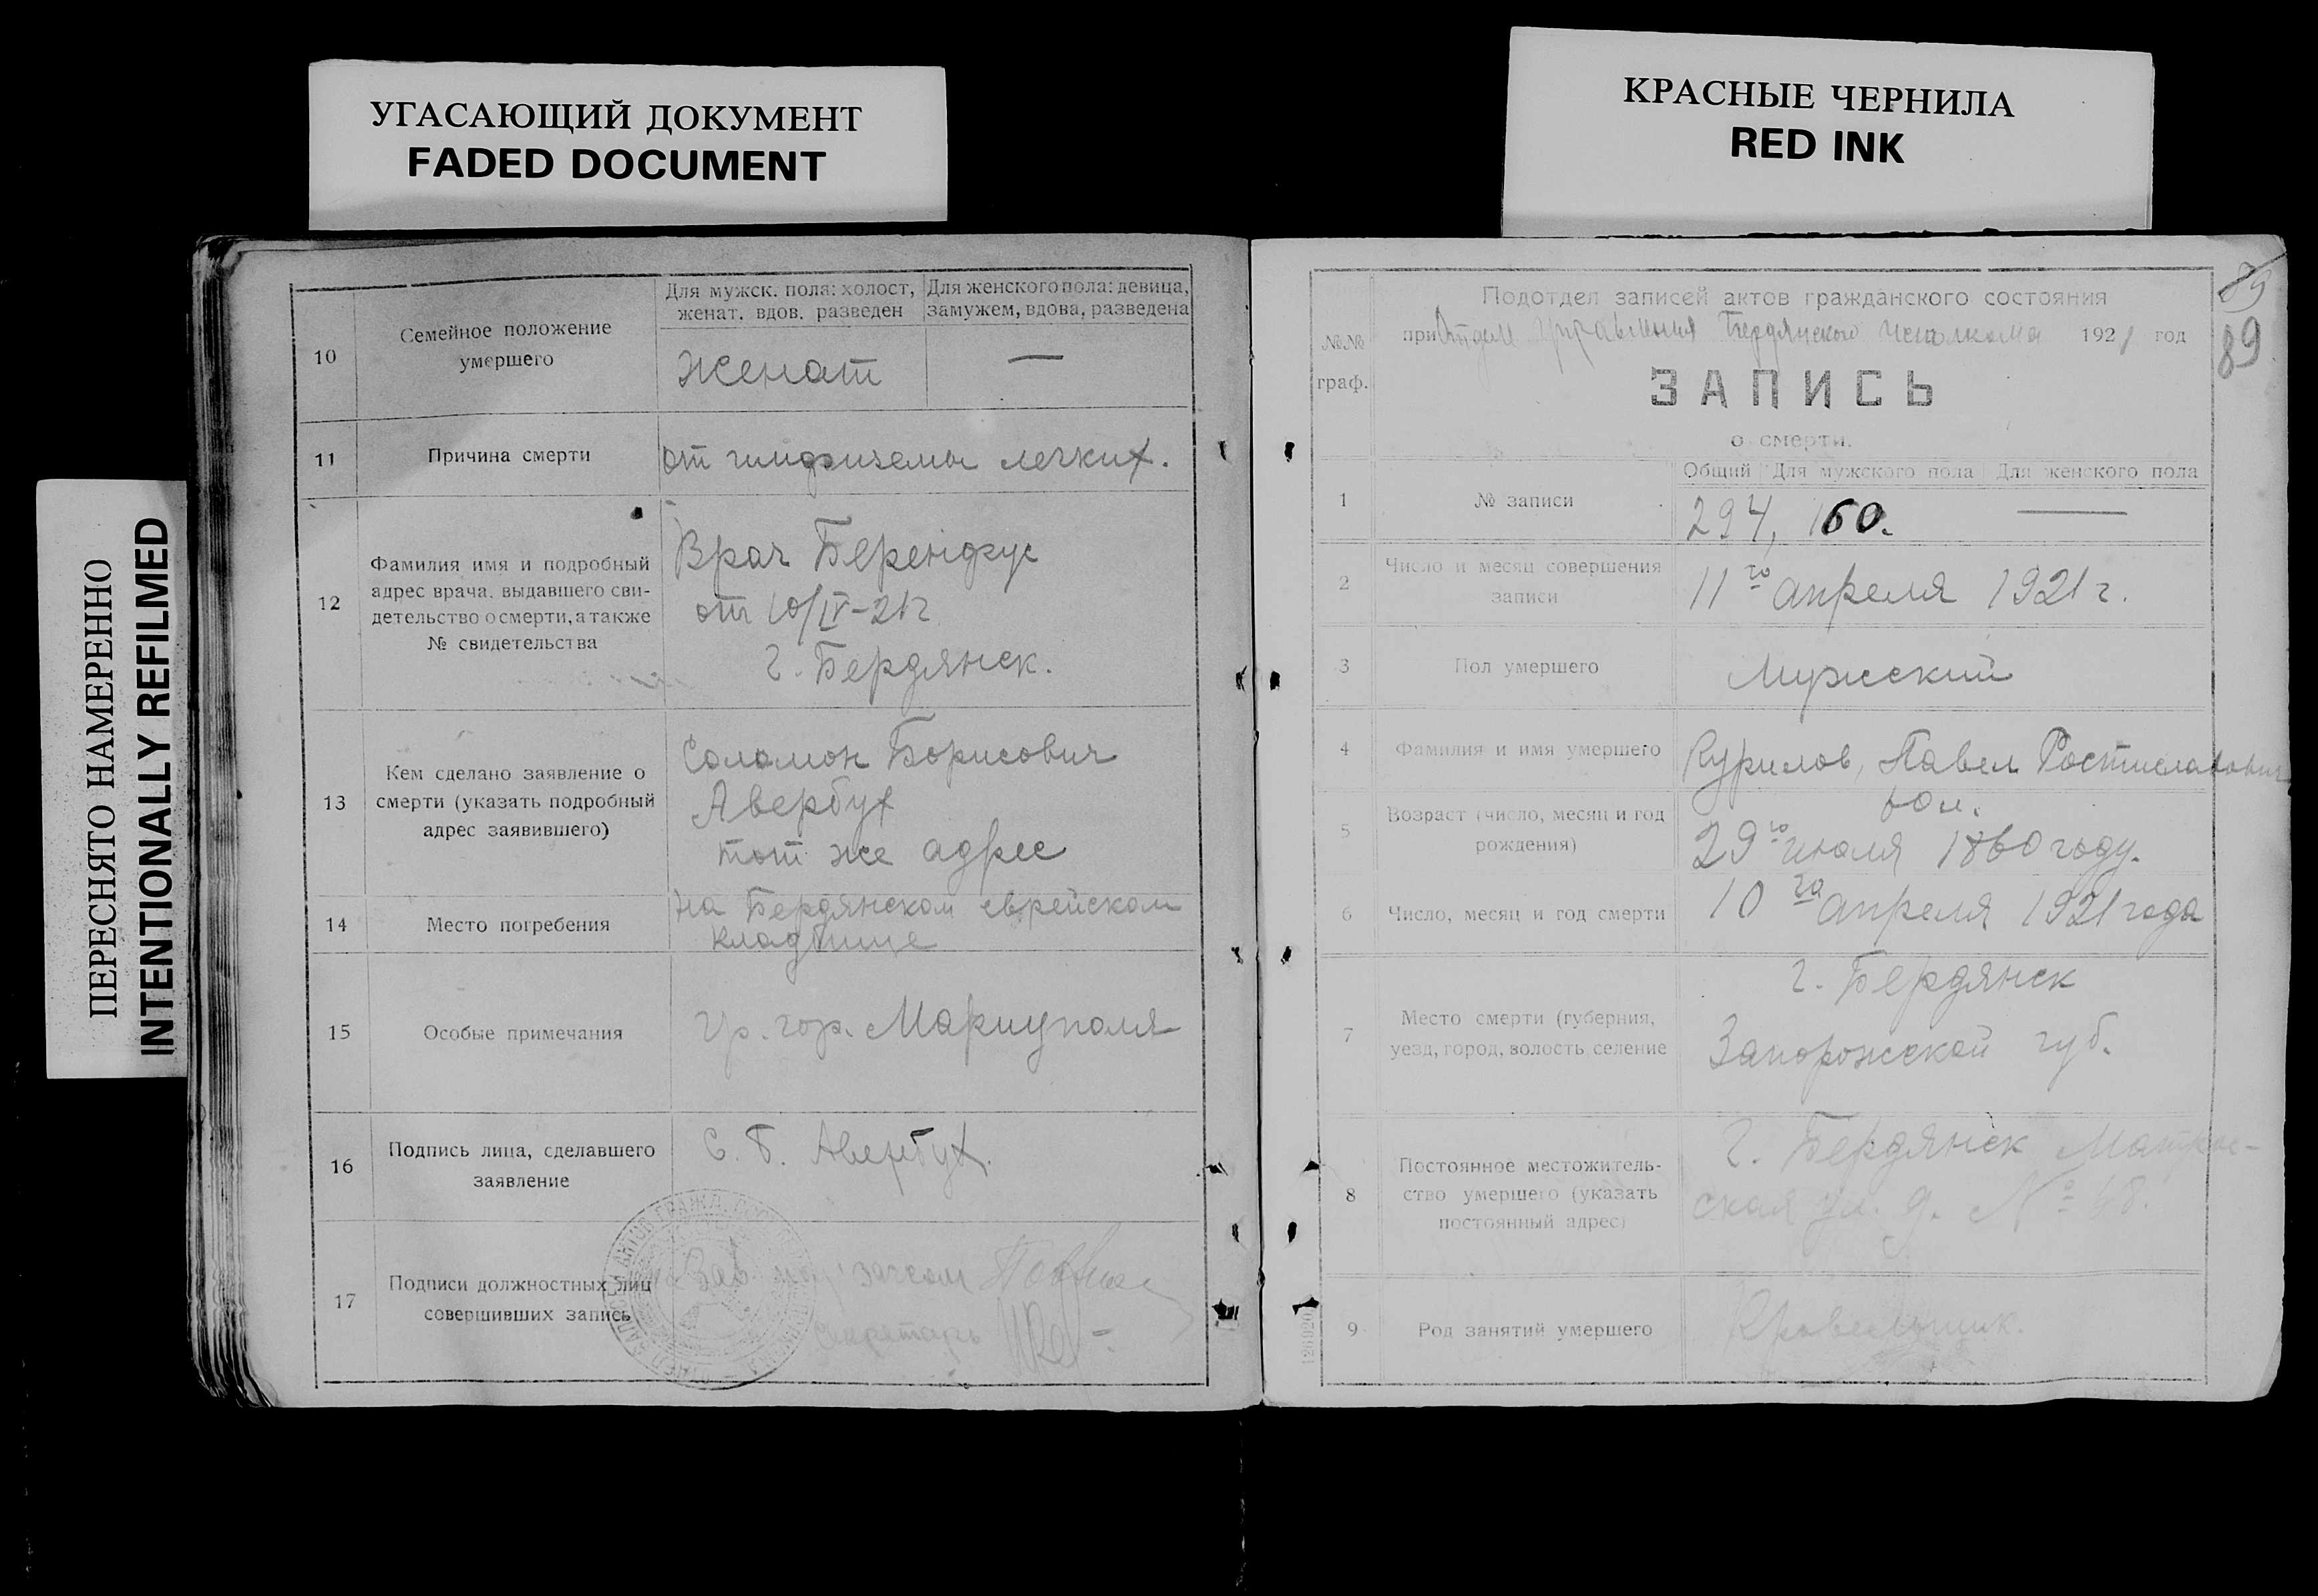 УГАСАЮЩИЙ ДОКУМЕНТ
FADED DOCUMENT
КРАСНЫЕ ЧЕРНИЛА
RED INK
ПЕРЕСНЯТО НАМЕРЕННО
INTENTIONALLY REFILMED
10
Семейное положение
умершего
Для мужск. пола: холост,
женат. вдов. разведен
Для женского пола: девица,
замужем, вдова, разведена
Женат
—
11
Причина смерти
от легких.
12
Фамилия имя и подробный
адрес врача, выдавшего сви-
детельство о смерти, а также
№ свидетельства
Врач Беренфус
от 10/IV-21г
г. Бердянск.
13
Кем сделано заявление о
смерти (указать подробный
адрес заявившего)
Соломон Борисович
Авербух
тот же адрес
14
Место погребения
на Бердянском еврейском
кладбище
15
Особые примечания
гр. гор. Мариуполя
16
Подпись лица, сделавшего
заявление
С. Б. Авербух.
17
Подписи должностных лиц
совершивших запись
Зав.
Секретарь
89
89
№№
граф.
Подотдел записей актов гражданского состояния
при Отделе Управления Бердянского Исполкома 1921 год
ЗАПИСЬ
о смерти.
1
№ записи
Общий Для мужского пола Для женского пола
294, 160. —
2
Число и месяц совершения
записи
11го апреля 1921 г.
3
Пол умершего
Мужский
4
Фамилия и имя умершего
Курилов, Павел Ростиславович
5
Возраст (число, месяц и год
рождения)
60 л.
29го июля 1860 году.
6
Число, месяц и год смерти
10го апреля 1921 года
7
Место смерти (губерния,
уезд, город, волость, селение
г. Бердянск
Запорожской губ.
8
Постоянное местожитель-
ство умершего (указать
постоянный адрес)
г. Бердянск Матрос-
ская ул. д. № 68.
9
Род занятий умершего
Кровельщик.